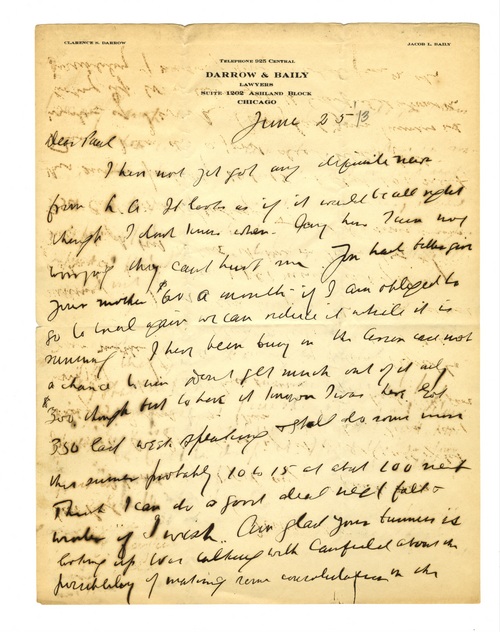 CLARENCE S. DARROW
JACOB L. BAILY
TELEPHONE 925 CENTRAL
DARROW & BAILY
LAWYERS
SUITE 1202 ASHLAND BLOCK
CHICAGO
June 25 13
Dear Paul
I have not yet got any definite news
from L.A. It looks as if it would be all right
though I dont know when. Any how I am not
worrying they cant hurt me You had better give
your mother $60 a month if I am obliged to
go to trial again we can reduce it while it is
running I have been busy in the case not
a chance to win dont get much out of it only
$500 though but to have it known I was here Got
350 last week speaking shall do some more
this summer probably 10 to 15 at about 100 net
Think I can do a good deal next fall &
winter if I wish. Am glad your business is
looking up Was talking with Canfield about the
possibility of making some consolidation in the